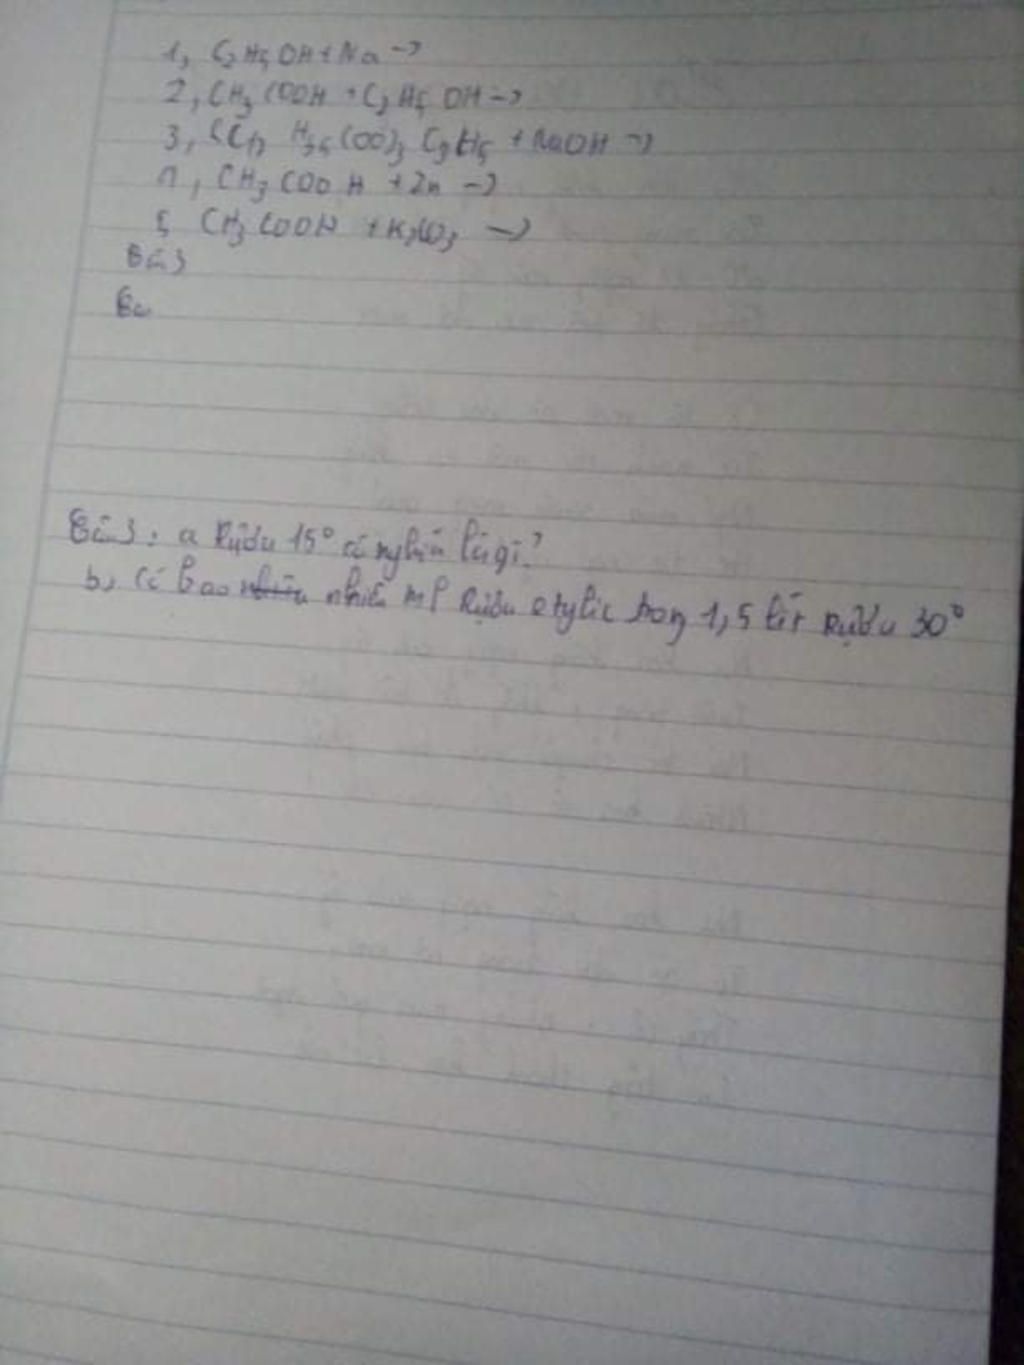 1, C2H5OH + Na ->
2, CH3COOH + C2H5OH ->
3, (C17H35COO)3C3H5 + NaOH ->
4, CH3COOH + Zn ->
5 CH3COOH + K2CO3 ->
Bài 3
Bà
Bài 3: a Rượu 15° có nghĩa là gì?
b, Có bao nhiêu nhiêu ml Rượu etylic trong 1,5 lít Rượu 30°